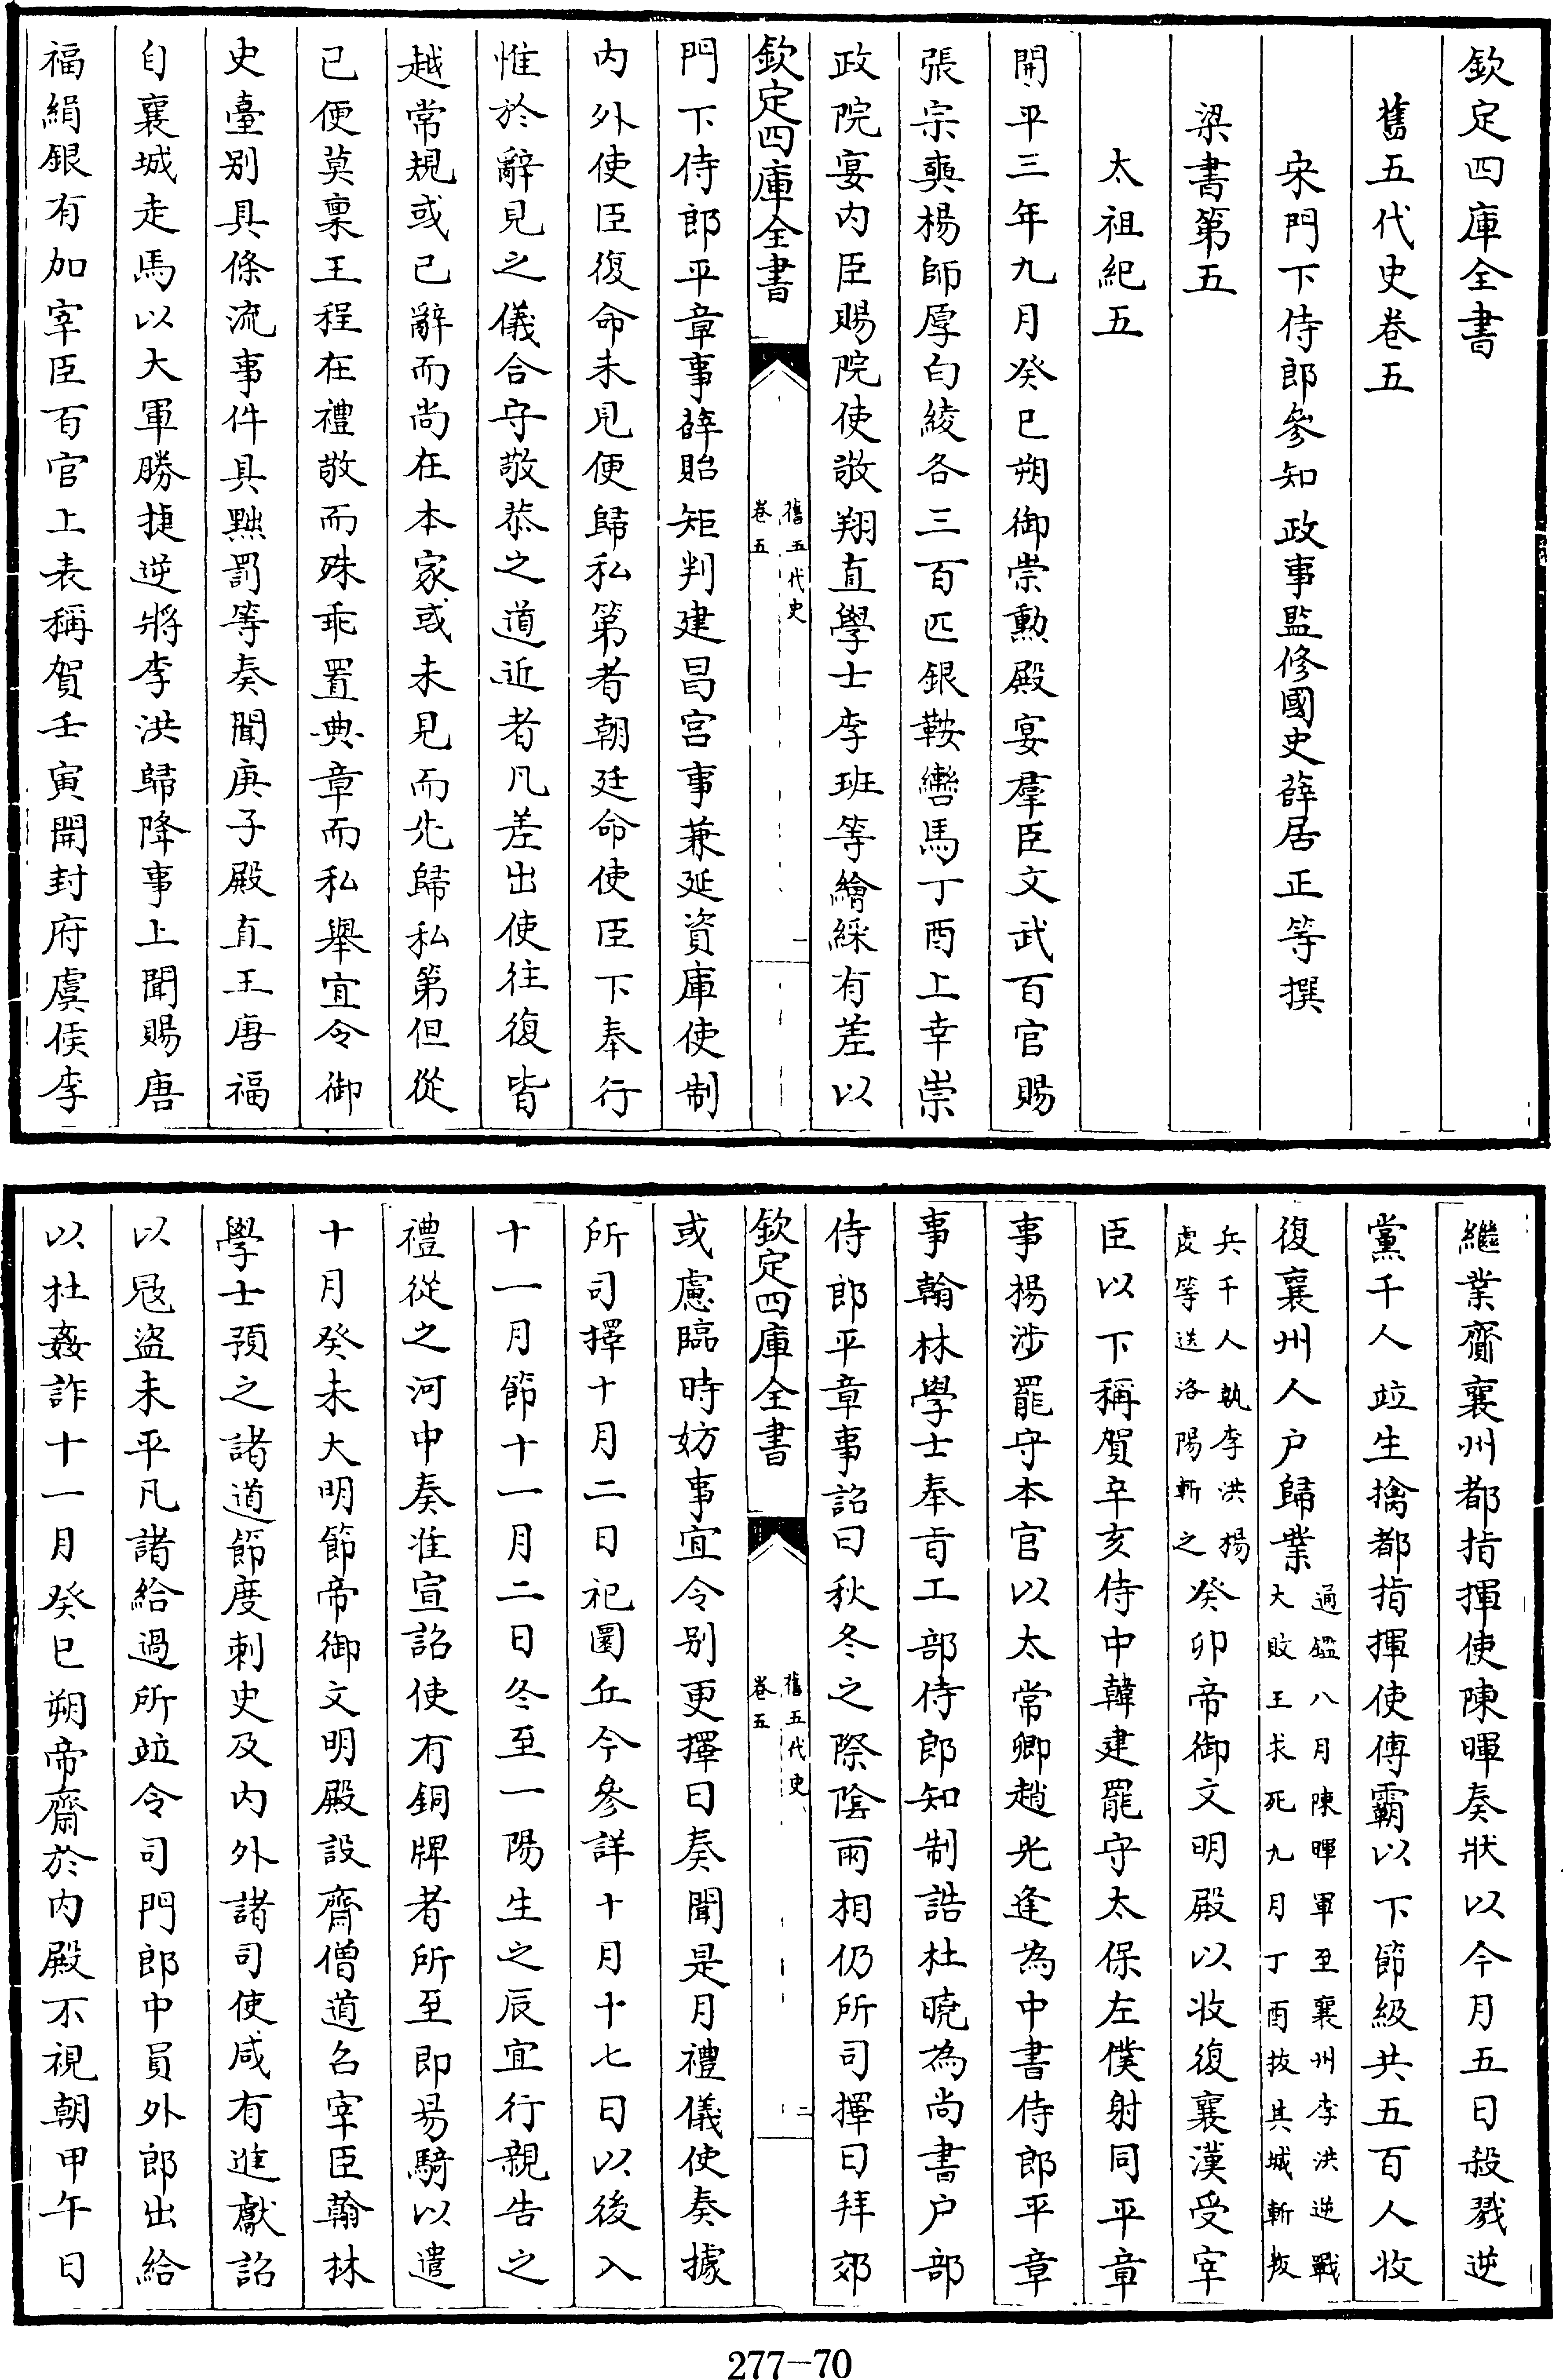 欽定四庫全書
舊五代史卷五
宋門下侍郎參知政事監修國史薛居正等撰
梁書第五
太祖紀五
開平三年九月癸巳朔御崇勲殿宴羣臣文武百官賜
張宗奭楊師厚白綾各三百匹銀鞍轡馬丁酉上幸崇
政院宴内臣賜院使敬翔直學士李班等繒綵有差以
欽定四庫全書
舊五代史
卷五
一
門下侍郎平章事薛貽矩判建昌宫事兼延資庫使制
内外使臣復命未見便歸私第者朝廷命使臣下奉行
惟於辭見之儀合守敬恭之道近者凡差出使往復皆
越常規或已辭而尚在本家或未見而先歸私第但從
已便莫稟王程在禮敬而殊乖置典章而私舉宜令御
史臺别具條流事件具黜罰等奏聞庚子殿直王唐福
自襄城走馬以大軍勝捷逆將李洪歸降事上聞賜唐
福絹銀有加宰臣百官上表稱賀壬寅開封府虞侯李
繼業齎襄州都指揮使陳暉奏狀以今月五日殺戮逆
黨千人竝生擒都指揮使傅霸以下節級共五百人收
復襄州人户歸業通鑑八月陳暉軍至襄州李洪逆戰
大敗王求死九月丁酉拔其城斬叛
兵千人執李洪楊
虔等送洛陽斬之癸卯帝御文明殿以收復襄漢受宰
臣以下稱賀辛亥侍中韓建罷守太保左僕射同平章
事楊涉罷守本官以太常卿趙光逢為中書侍郎平章
事翰林學士奉旨工部侍郎知制誥杜曉為尚書户部
侍郎平章事詔曰秋冬之際陰雨相仍所司擇日拜郊
欽定四庫全書
舊五代史
卷五
二
或慮臨時妨事宜令别更擇日奏聞是月禮儀使奏據
所司擇十月二日祀圜丘今參詳十月十七日以後入
十一月節十一月二日冬至一陽生之辰宜行親告之
禮從之河中奏准宣詔使有銅牌者所至即易騎以遣
十月癸未大明節帝御文明殿設齋僧道召宰臣翰林
學士預之諸道節度刺史及内外諸司使咸有進獻詔
以寇盜未平凡諸給過所竝令司門郎中員外郎出給
以杜姦詐十一月癸巳朔帝齋於内殿不視朝甲午日
277—70